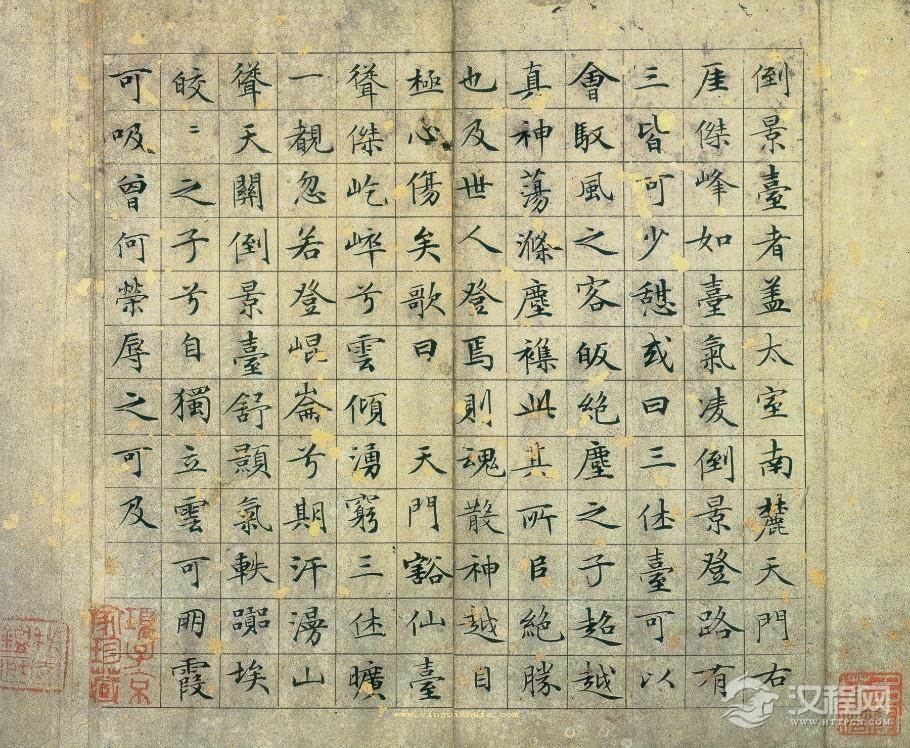 倒景臺者盖太室南麓天門右
厓傑峰如臺氣凌倒景登路有
三皆可少憇或曰三休臺可以
會馭風之客皈絶塵之子超越
真神蕩滌塵襟此其所㠯絶勝
也及世人登焉則魂散神越目
極心傷矣歌曰 天門豁仙臺
聳傑屹崒兮雲傾湧窮三休曠
一覩忽若登崐崙兮期汗漫山
聳天關倒景臺舒顥氣軼嚻埃
皎〻之子兮自獨立雲可朋霞
可吸曾何榮辱之可及
項子京家珍藏
www.yingbishufa.com
汉程网
WWW.HTTPCN.COM